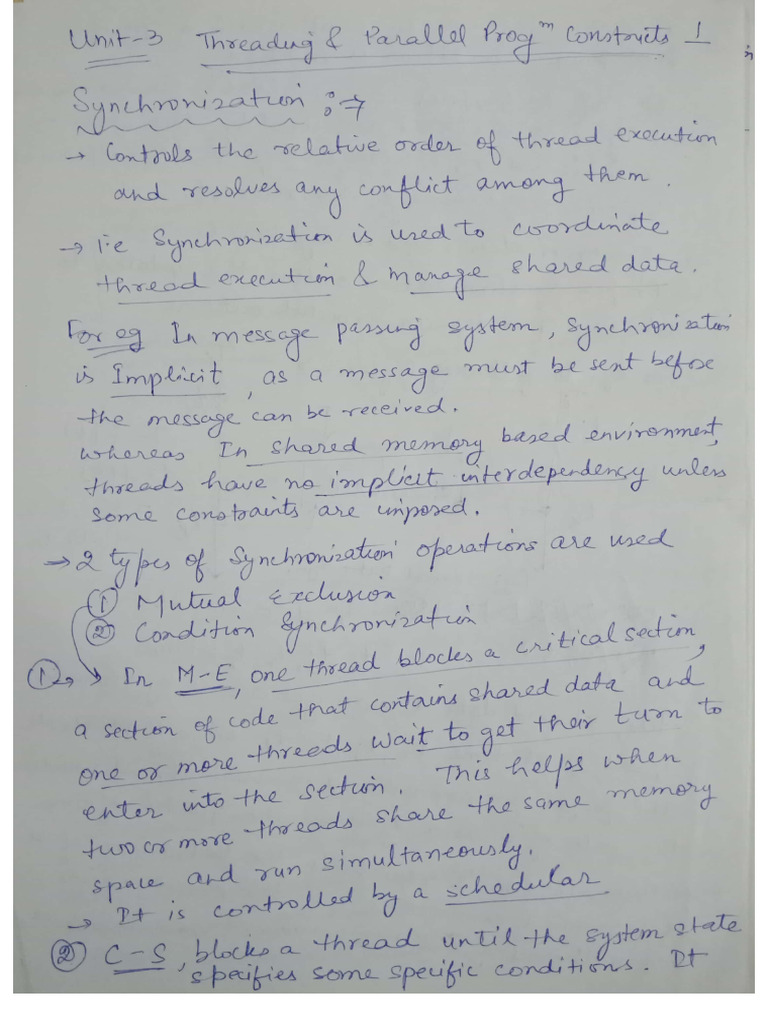 Unit-3 Threading & Parallel Progᵐ Constructs 1
Synchronization :→
→ Controls the relative order of thread execution
and resolves any conflict among them.
→ i.e Synchronization is used to coordinate
thread execution & manage shared data.
For eg In message passing system, Synchronization
is Implicit, as a message must be sent before
the message can be received.
whereas In shared memory based environment,
threads have no implicit interdependency unless
some constraints are imposed.
→ 2 types of Synchronization operations are used
① Mutual Exclusion
② Condition Synchronization
① → In M-E, one thread blocks a critical section,
a section of code that contains shared data and
one or more threeds wait to get their turn to
enter into the section. This helps when
two or more threads share the same memory
space and run simultaneously.
→ It is controlled by a schedular
② C-S, blocks a thread until the system state
specifies some specific conditions. It